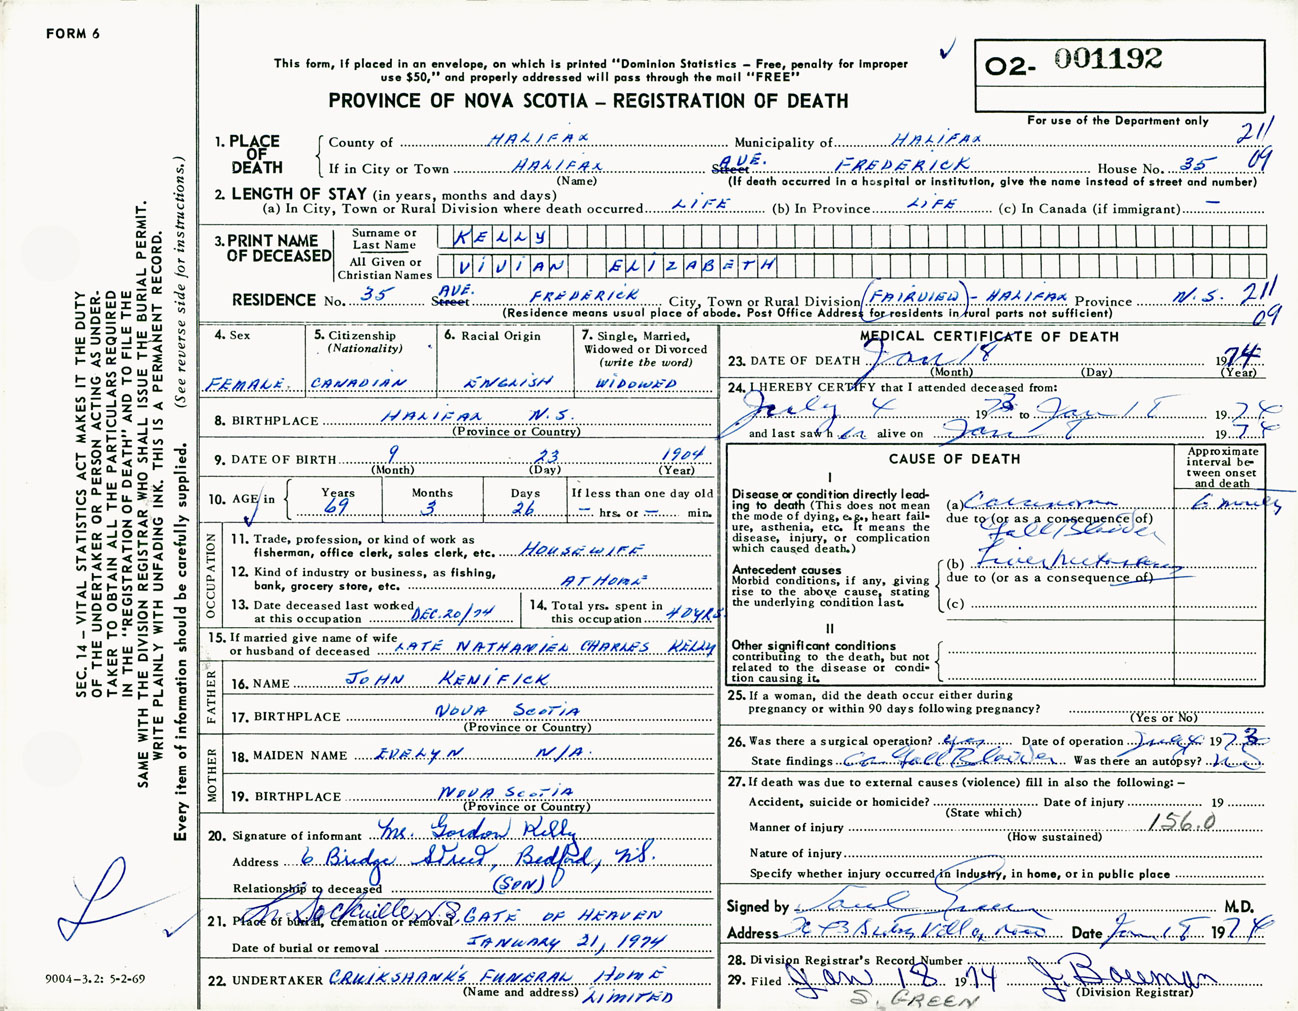 FORM 6
This form, if placed in an envelope, on which is printed "Dominion Statistics – Free, penalty for improper
use $50," and properly addressed will pass through the mail "FREE"
PROVINCE OF NOVA SCOTIA – REGISTRATION OF DEATH
02- 001192
For use of the Department only
211
09
1. PLACE OF DEATH
County of HALIFAX Municipality of HALIFAX
If in City or Town HALIFAX Street AVE. FREDERICK House No. 35
(Name) (If death occurred in a hospital or institution, give the name instead of street and number)
2. LENGTH OF STAY (in years, months and days)
(a) In City, Town or Rural Division where death occurred LIFE (b) In Province LIFE (c) In Canada (if immigrant) –
3. PRINT NAME OF DECEASED
Surname or Last Name KELLY
All Given or Christian Names VIVIAN ELIZABETH
RESIDENCE No. 35 Street AVE. FREDERICK City, Town or Rural Division (FAIRVIEW) - HALIFAX Province N.S. 211
09
(Residence means usual place of abode. Post Office Address for residents in rural parts not sufficient)
4. Sex
FEMALE
5. Citizenship
(Nationality)
CANADIAN
6. Racial Origin
ENGLISH
7. Single, Married,
Widowed or Divorced
(write the word)
WIDOWED
8. BIRTHPLACE HALIFAX N.S.
(Province or Country)
9. DATE OF BIRTH 9 23 1904
(Month) (Day) (Year)
10. AGE in
Years Months Days If less than one day old
69 3 26 – hrs. or – min.
OCCUPATION
11. Trade, profession, or kind of work as
fisherman, office clerk, sales clerk, etc. HOUSEWIFE
12. Kind of industry or business, as fishing,
bank, grocery store, etc. AT HOME
13. Date deceased last worked
at this occupation DEC. 20/74
14. Total yrs. spent in
this occupation 40 YRS.
15. If married give name of wife
or husband of deceased LATE NATHANIEL CHARLES KELLY
FATHER
16. NAME JOHN KENIFICK
17. BIRTHPLACE NOVA SCOTIA
(Province or Country)
MOTHER
18. MAIDEN NAME EVELYN N/A.
19. BIRTHPLACE NOVA SCOTIA
(Province or Country)
20. Signature of informant Mr. Gordon Kelly
Address 6 Bridge Street, Bedford, N.S.
Relationship to deceased (SON)
21. Place of burial, cremation or removal Sackville N.S. GATE OF HEAVEN
Date of burial or removal JANUARY 21, 1974
22. UNDERTAKER CRUIKSHANK'S FUNERAL HOME
(Name and address) LIMITED
MEDICAL CERTIFICATE OF DEATH
23. DATE OF DEATH Jan 18 1974
(Month) (Day) (Year)
24. I HEREBY CERTIFY that I attended deceased from:
July 4 1973 to Jan 18 1974
and last saw h er alive on Jan 1974
CAUSE OF DEATH
Approximate
interval be-
tween onset
and death
I
Disease or condition directly lead-
ing to death (This does not mean
the mode of dying, e.g., heart fail-
ure, asthenia, etc. It means the
disease, injury, or complication
which caused death.)
(a) Carcinoma 6 months
due to (or as a consequence of)
Gall Bladder
Antecedent causes
Morbid conditions, if any, giving
rise to the above cause, stating
the underlying condition last.
(b) Liver
due to (or as a consequence of)
(c)
II
Other significant conditions
contributing to the death, but not
related to the disease or condi-
tion causing it.
25. If a woman, did the death occur either during
pregnancy or within 90 days following pregnancy?
(Yes or No)
26. Was there a surgical operation? yes Date of operation July 1973
State findings Ca Gall Bladder Was there an autopsy? no
27. If death was due to external causes (violence) fill in also the following: –
Accident, suicide or homicide? Date of injury 19
(State which)
Manner of injury 156.0
(How sustained)
Nature of injury
Specify whether injury occurred in Industry, in home, or in public place
Signed by M.D.
Address Date Jan 18 1974
28. Division Registrar's Record Number
29. Filed Jan 18 1974 J. Bowman
(Division Registrar)
S. GREEN
SEC. 14 – VITAL STATISTICS ACT MAKES IT THE DUTY
OF THE UNDERTAKER OR PERSON ACTING AS UNDER-
TAKER TO OBTAIN ALL THE PARTICULARS REQUIRED
IN THE "REGISTRATION OF DEATH" AND TO FILE THE
SAME WITH THE DIVISION REGISTRAR WHO SHALL ISSUE THE BURIAL PERMIT.
WRITE PLAINLY WITH UNFADING INK. THIS IS A PERMANENT RECORD.
Every item of information should be carefully supplied. (See reverse side for instructions.)
9004–3.2: 5-2-69